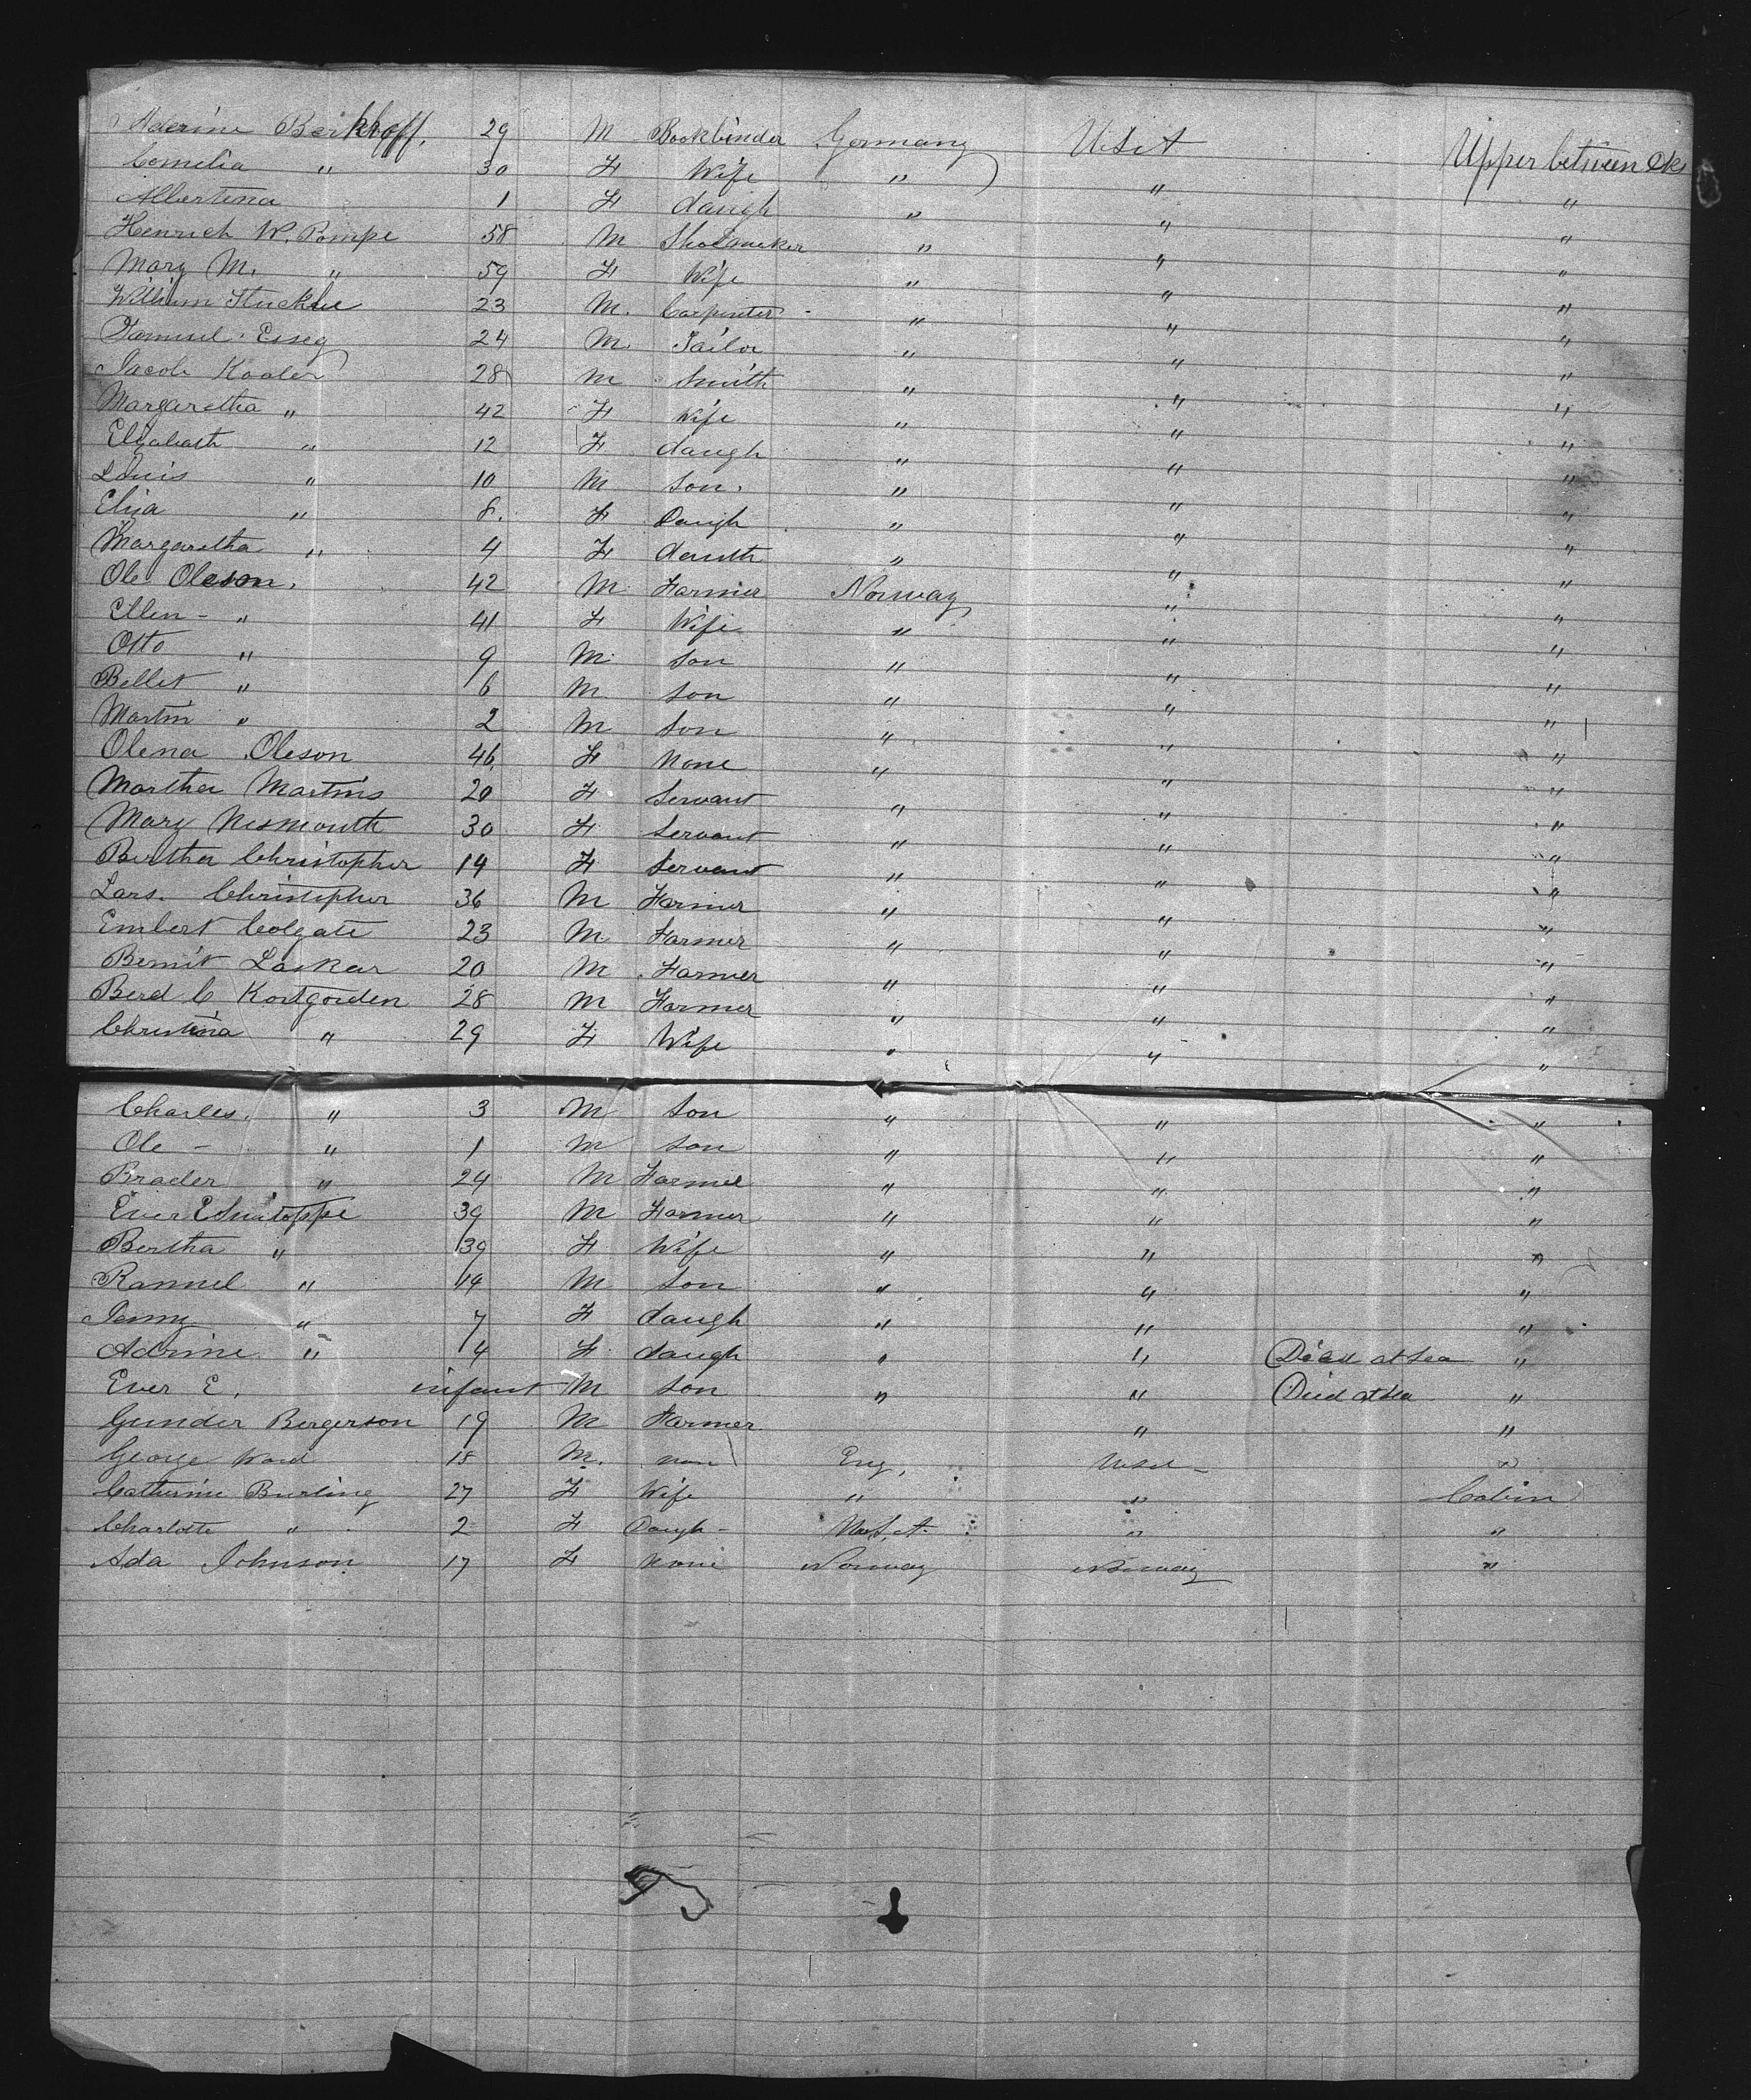 Aderine Berkhoff, 29 M Bookbinder Germany U.S.A Upper between Dks
Cornelia " 30 F Wife " " "
Albertina 1 F daugh " " "
Henrich W. Pompe 58 M Shoemaker " " "
Mary M. " 59 F Wife " " "
William Stucklie 23 M. Carpenter " " "
Samuel Esseg 24 M. Tailor " " "
Jacob Kooler 28 M Smith " " "
Margaretha " 42 F Wife " " "
Elizabeth " 12 F daugh " " "
Louis " 10 M son. " " "
Eliza " 8. F Daugh " " "
Margaretha " 4 F dauth " " "
Ole Oleson. 42 M Farmer Norway " "
Ellen - " 41 F Wife " " "
Otto " 9 M. son " " "
Bellet " 6 M son " " "
Martin " 2 M son " " "
Olena Oleson 46 F None " " "
Martha Martins 20 F Servant " " "
Mary Nesmouth 30 F Servant " " "
Bertha Christopher 14 F Servant " " "
Lars. Christopher 36 M Farmer " " "
Embert Colgate 23 M. Farmer " " "
Bernit Laskar 20 M Farmer " " "
Berd C Kortgorden 28 M Farmer " " "
Christina " 29 F Wife " " "
Charles. " 3 M son " " "
Ole - " 1 M son " " "
Brader " 24 M Farmer " " "
Ever E 39 M Farmer " " "
Bertha " 39 F Wife " " "
Rannel " 14 M son " " "
Jenny " 7 F daugh " " "
Adrine " 4 F. daugh " " Died at Sea "
Ever E. infant M son " " Died at Sea "
Gunder Bergerson 19 M Farmer " "
George Ward 18 M. non Eng. U.S.A - "
Catherine Burling 27 F Wife " " Cabin
Charlotte " 2 F Daugh - U.S.A. " "
Ada Johnson. 17 F None Norway Norway "